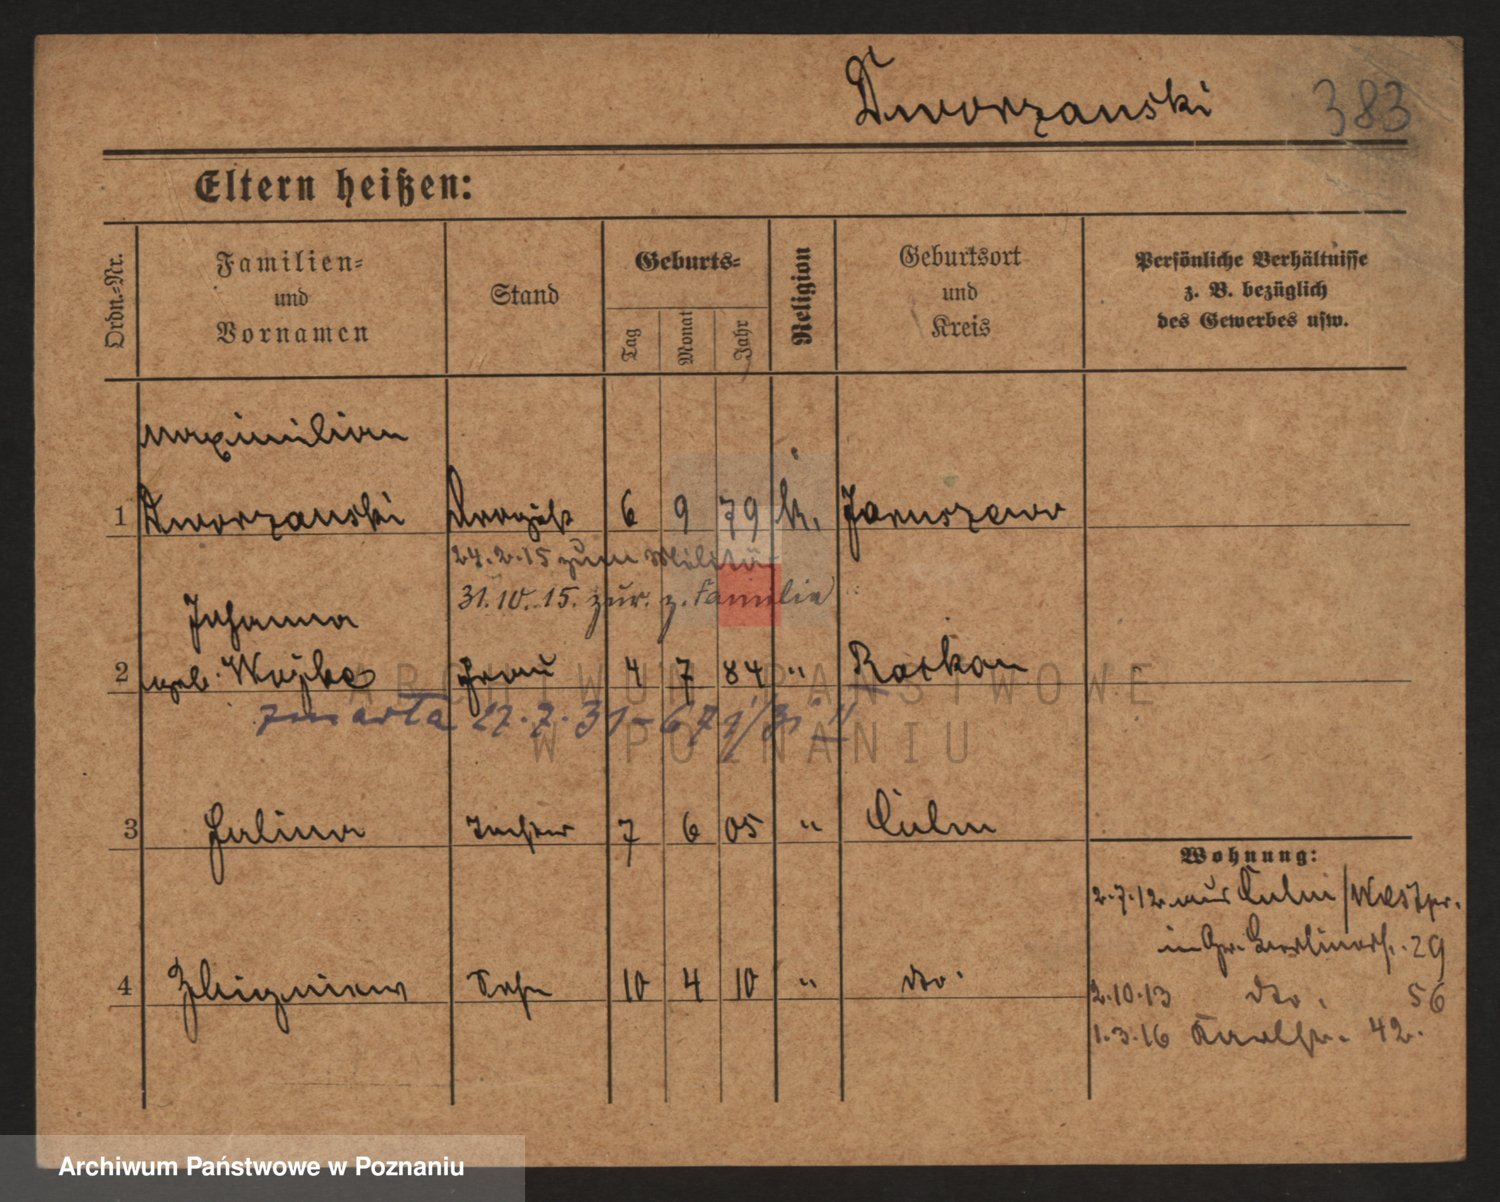 Dworzanski 383
Eltern heißen:
Ordn.-Nr.
Familien-
und
Vornamen
Stand
Geburts-
Tag
Monat
Jahr
Religion
Geburtsort
und
Kreis
Persönliche Verhältnisse
z. B. bezüglich
des Gewerbes usw.
Maximilian
1 Dworzanski Drogist 6 9 79 k. Januszewo
24.2.15 zum Militär
31.10.15. zur. z. Familie
Johanna
2 geb. Wojke Frau 4 7 84 " Raskau
zmarła 27.7.31
3 Halina Tochter 7 6 05 " Culm
4 Zbigniew Sohn 10 4 10 " dto.
Wohnung:
2.7.12 aus Culm/Westpr.
in Gr. Berlinerst. 29
2.10.13 dto. 56
1.3.16 Karlstr. 42.
ARCHIWUM PAŃSTWOWE
W POZNANIU
Archiwum Państwowe w Poznaniu